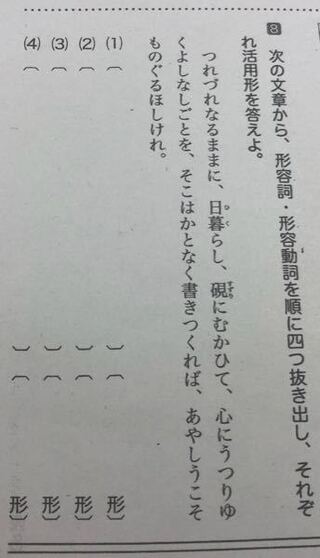 8 次の文章から、形容詞・形容動詞を順に四つ抜き出し、それぞ
れ活用形を答えよ。
つれづれなるままに、日暮らし、硯にむかひて、心にうつりゆ
くよしなしごとを、そこはかとなく書きつくれば、あやしうこそ
ものぐるほしけれ。
(1)〔 〕〔 形〕
(2)〔 〕〔 形〕
(3)〔 〕〔 形〕
(4)〔 〕〔 形〕